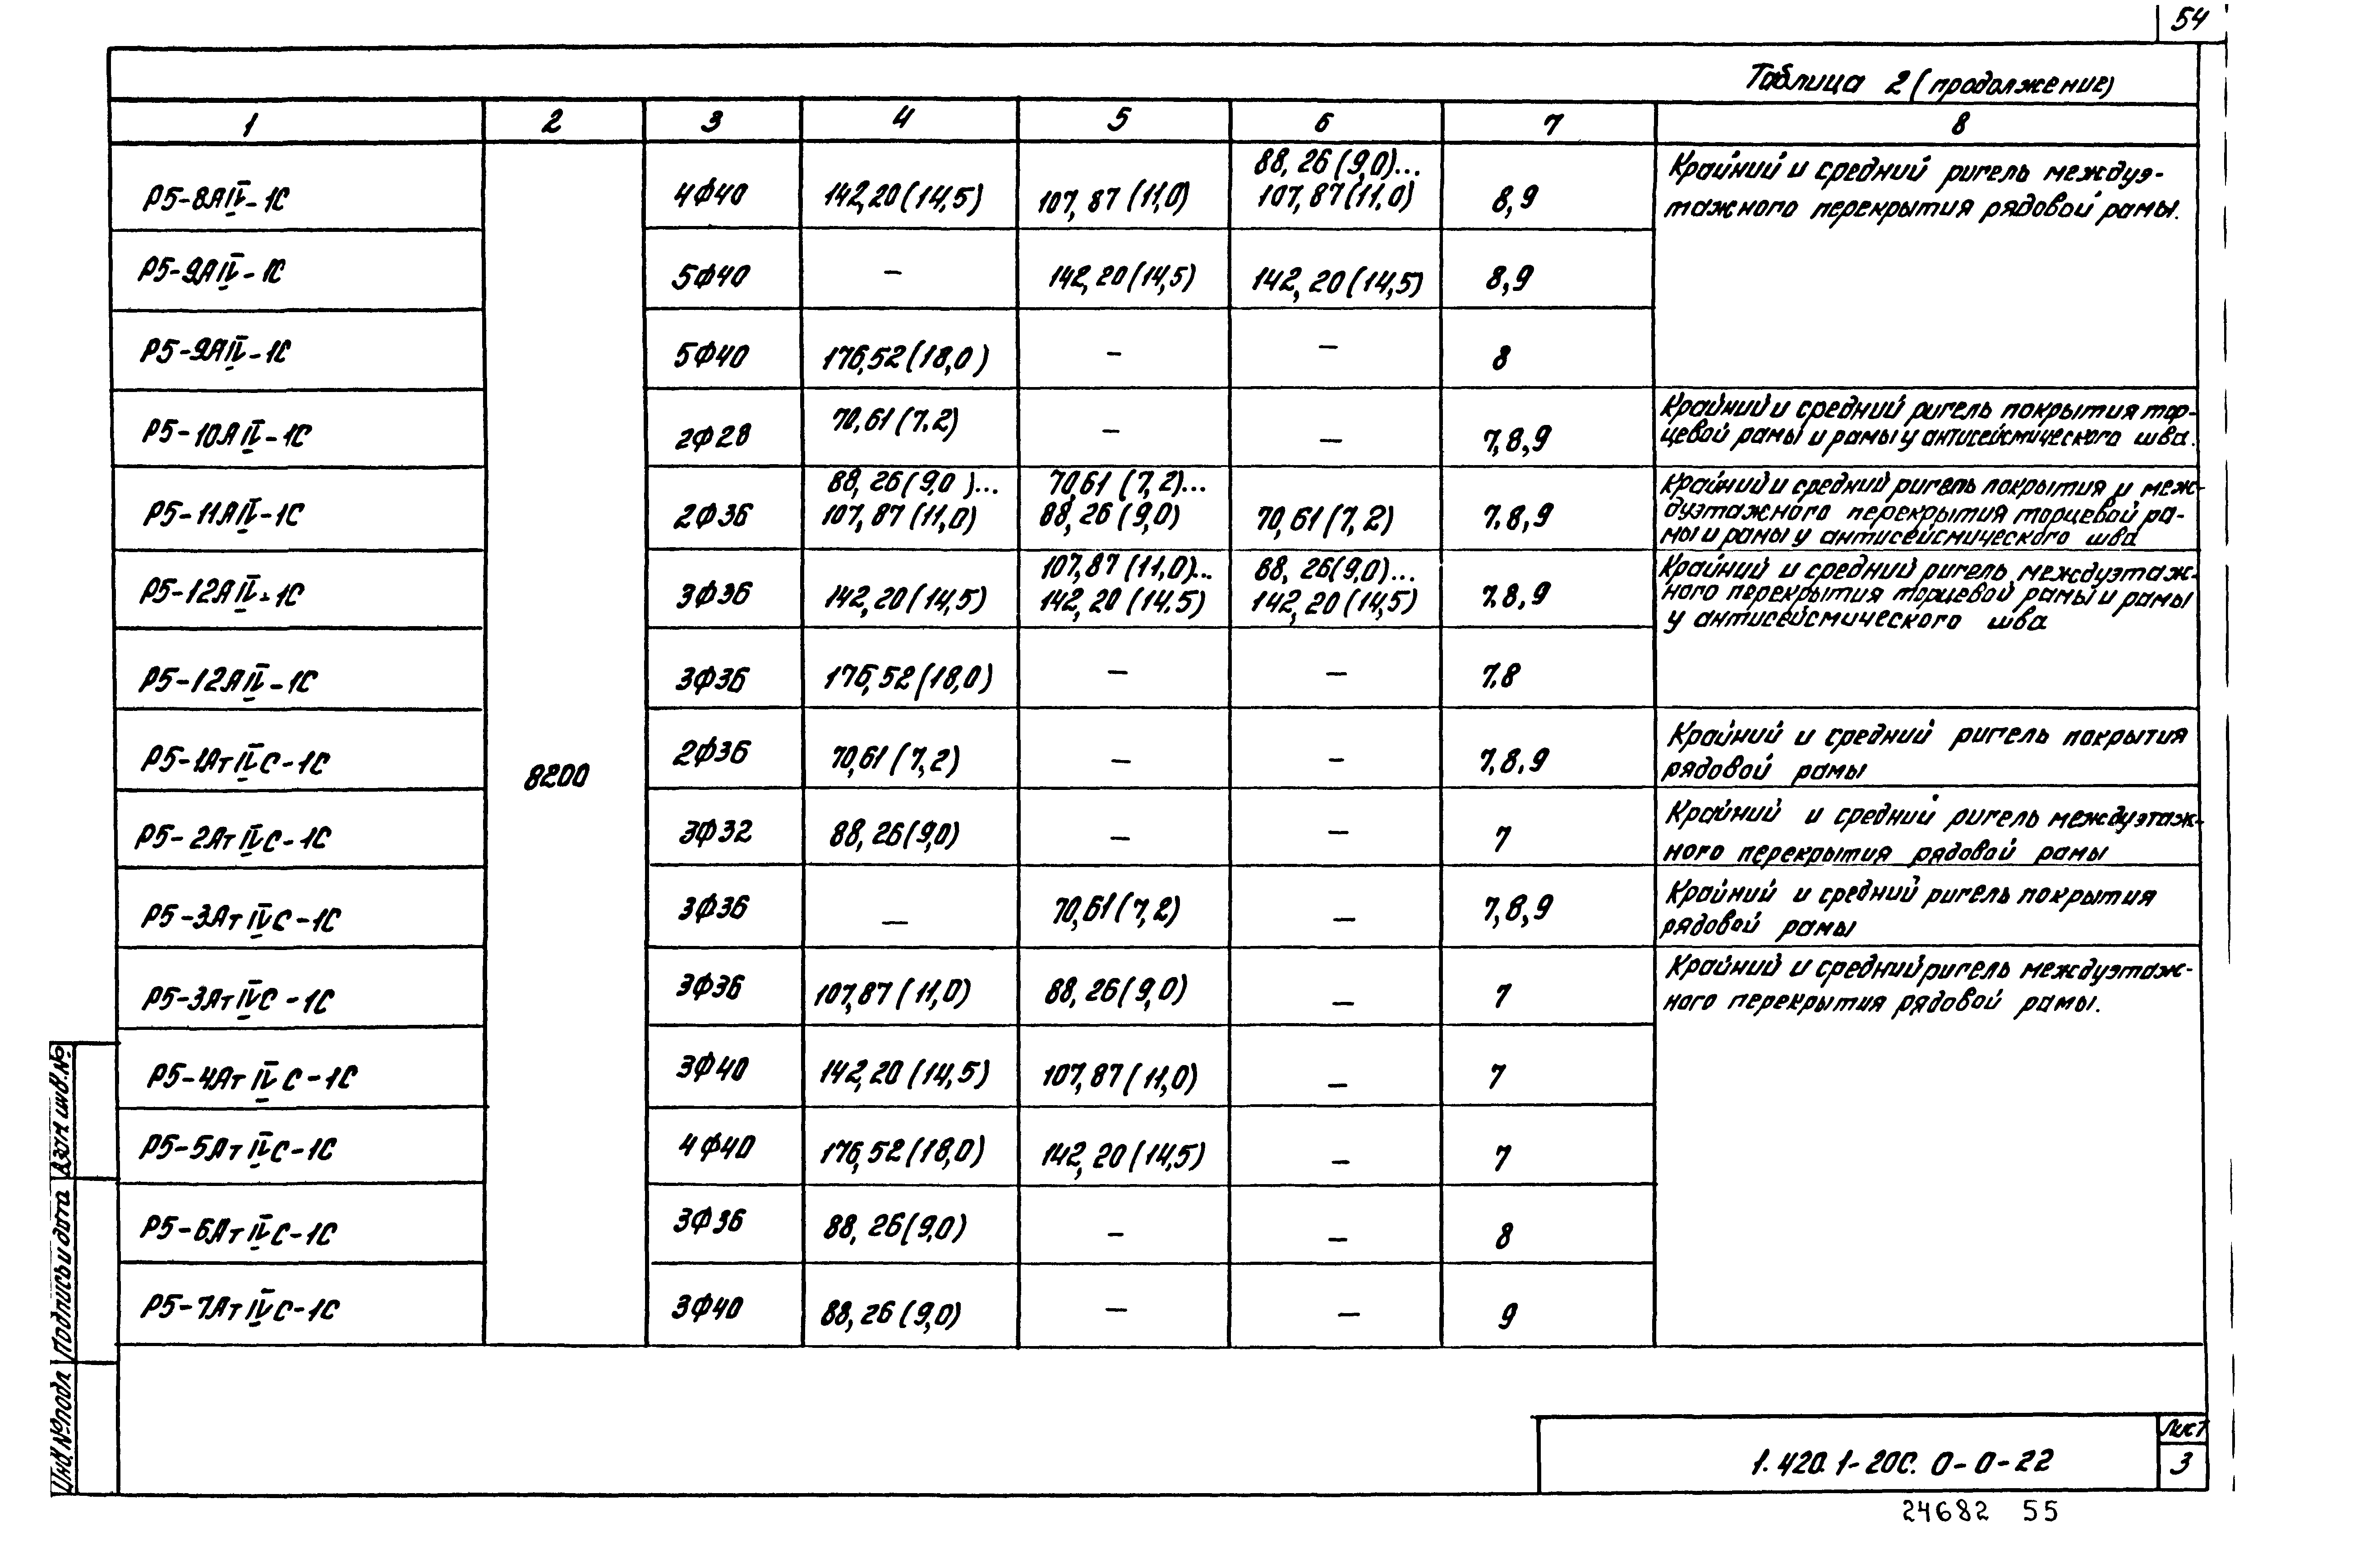 54
Таблица 2 (продолжение)
1 2 3 4 5 6 7 8
88,26(9,0)...
Р5-8АIV-1С 4Ф40 142,20(14,5) 107,87(11,0) 107,87(11,0) 8,9
Крайний и средний ригель междуэ-
тажного перекрытия рядовой рамы.
Р5-9АIV-1С 5Ф40 — 142,20(14,5) 142,20(14,5) 8,9
Р5-9АIV-1С 5Ф40 176,52(18,0) — — 8
Р5-10АIV-1С 2Ф28 70,61(7,2) — — 7,8,9
Крайний и средний ригель покрытия тор-
цевой рамы и рамы у антисейсмического шва.
88,26(9,0)... 70,61(7,2)...
Р5-11АIV-1С 2Ф36 107,87(11,0) 88,26(9,0) 70,61(7,2) 7.8,9
Крайний и средний ригель покрытия и меж-
дуэтажного перекрытия торцевой ра-
мы и рамы у антисейсмического шва
107,87(11,0)... 88,26(9,0)...
Р5-12АIV-1С 3Ф36 142,20(14,5) 142,20(14,5) 142,20(14,5) 7.8,9
Крайний и средний ригель междуэтаж-
ного перекрытия торцевой рамы и рамы
у антисейсмического шва
Р5-12АIV-1С 3Ф36 176,52(18,0) — — 7.8
Р5-1АтIVС-1С 8200 2Ф36 70,61(7,2) — — 7,8,9
Крайний и средний ригель покрытия
рядовой рамы
Р5-2АтIVС-1С 3Ф32 88,26(9,0) — — 7
Крайний и средний ригель междуэтаж-
ного перекрытия рядовой рамы
Р5-3АтIVС-1С 3Ф36 — 70,61(7,2) — 7,8,9
Крайний и средний ригель покрытия
рядовой рамы
Р5-3АтIVС-1С 3Ф36 107,87(11,0) 88,26(9,0) — 7
Крайний и средний ригель междуэтаж-
ного перекрытия рядовой рамы.
Р5-4АтIVС-1С 3Ф40 142,20(14,5) 107,87(11,0) — 7
Р5-5АтIVС-1С 4Ф40 176,52(18,0) 142,20(14,5) — 7
Р5-6АтIVС-1С 3Ф36 88,26(9,0) — — 8
Р5-7АтIVС-1С 3Ф40 88,26(9,0) — — 9
Взам инв.№
Подпись и дата
Инв.№ подл
1.420.1-20С.0-0-22
Лист
3
24682 55